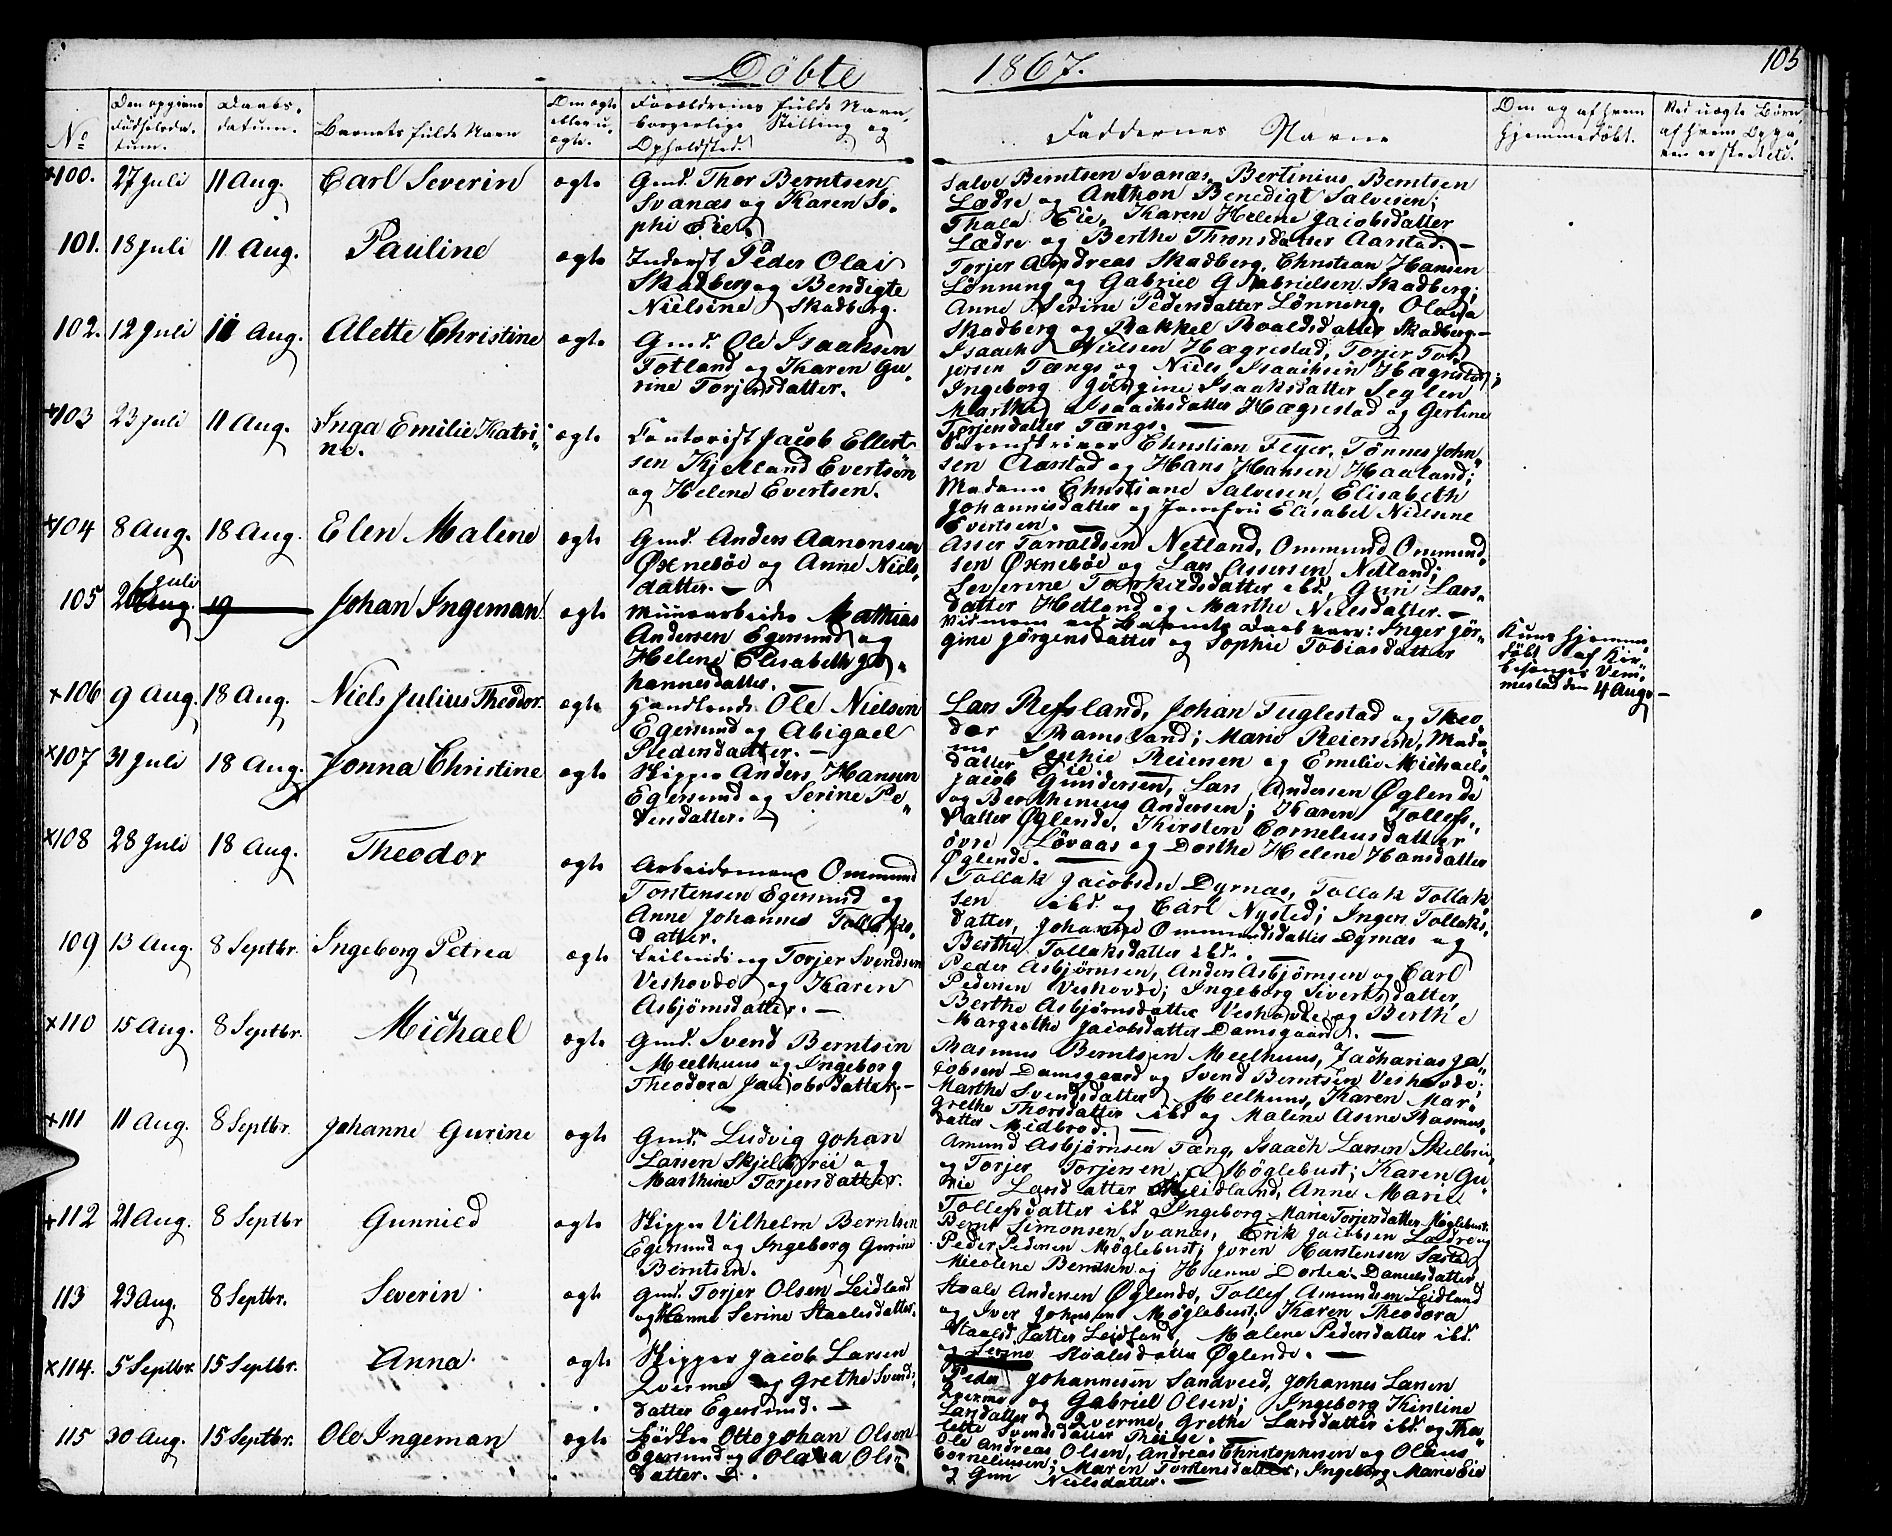 Döbte 1867. 105
No
Den opgivne Födselsda-tum.
Daabs-datum.
Barnets fulde Navn
Om ægte eller u-ægte.
Forældrenes fulde Navn, borgerlige Stilling og Opholdsted.
Faddernes Navne
Om og af hvem hjemmedöbt.
Ved uægte Börn, af hvem Opgaven er skeet etc.
×100. 27 Juli 11 Aug. Carl Severin ægte
Gmd. Thor Berntsen
Svanæs og Karen So-
phi Eie.
Salve Berntsen Svanæs, Bertinius Berntsen
Lædre og Anthon Benedigt Salvesen;
Thala Eie, Karen Helene Jacobsdatter
Lædre og Berthe Thronsdatter Aarstad.—
101. 18 Juli 11 Aug. Pauline ægte
Inderst Peder Olai
Skadberg og Bendigte
Nielsine Skadberg.
Torjer Andreas Skadberg, Christian Hansen
Lönning og Gabriel Gabrielsen Skadberg;
Anne Serine Pedersdatter Lönning, Olava
Skadberg og Rakkel Roaldsdatter Skadberg—
102. 12 Juli 11 Aug. Alette Christine ægte
Gmd. Ole Isaaksen
Fotland og Karen Gu-
rine Torjersdatter.
Isaach Nielsen Hægrestad, Torjer Tob
jersen Tængs og Niels Isaachsen Hægrestad;
Ingeborg Görgine Isaaksdatter Seglem
Marthe Isaachsdatter Hægrestad og Gertine
Torjersdatter Tængs.—
×103 23 Juli 11 Aug. Inga Emilie Katri-
ne. ægte
Contorist Jacob Ellert-
sen Kjelland Evertsön
og Helene Evertsen.
Christian Feyer, Tönnes John-
sen Aarstad og Hans Hansen Haaland;
Madame Christiane Salvesen, Elisabeth
Johannisdatter og Jomfru Elisabet Nielsine
Evertsen.—
×104 8 Aug. 18 Aug. Elen Malene ægte
Gmd. Anders Aanensen
Öxneböe og Anne Niels-
datter.—
Asser Tarraldsen Netland, Ommund Ommund-
sen Öxneböe og Lars Assersen Netland;
Severine Torkildsdatter ibd, Guri Lars-
datter Hetland og Marthe Nielsdatter.—
105 26 Juli 19 Johan Ingeman ægte
Minearbeider Mathias
Andersen Egersund og
Helene Elisabeth Jo-
hannesdatter.
Vidnerne ved Barnets Daab vare: Inger Jör-
gine Jörgensdatter og Sophie Tobiasdatter
Kun hjemme-
döbt af Kir-
kesanger Vem-
mestad den 4 Aug.—
×106 9 Aug. 18 Aug. Niels Julius Theodor. ægte
Handlende Ole Nielsen
Egersund og Abigael
Pedersdatter.—
Lars Refsland, Johan Fuglestad og Theo-
dor Ramsland; Marie Reiersen, Mada-
me Sophie Reiersen og Emilie Michaels-
datter Eie
×107 31 Juli 18 Aug. Jonna Christine ægte
Skipper Anders Hansen
Egersund og Serine Pe-
dersdatter.—
Jacob Gundersen, Lars Andersen Öglende
og Berthinius Andersen; Karen Tollefs-
datter Öglende, Kirsten Corneliusdatter
övre Lövaas og Dorthe Helene Hansdatter
Öglende.—
×108 28 Juli 18 Aug. Theodor ægte
Arbeidsmand Ommund
Torstensen Egersund og
Anne Johanne Tollaks-
datter.
Tollak Jacobsen Dyrnæs, Tollak Tollak-
sen ibd. og Carl Nysted; Inger Tollaks-
datter, Johanne Ommundsdatter Dyrnæs og
Berthe Tollaksdatter ibd.—
109 13 Aug. 8 Septbr. Ingeborg Petrea ægte
Leilending Torjer Svendsen
Veshovde og Karen
Asbjörnsdatter.—
Peder Asbjörnsen, Anders Asbjörnsen og Carl
Pedersen Veshovde; Ingeborg Sivertsdatter,
Berthe Asbjörnsdatter Veshovde og Berthe
Margrethe Jacobsdatter Damsgaard.—
×110 15 Aug. 8 Septbr. Michael ægte
Gmd. Svend Berntsen
Meelhuus og Ingeborg
Theodora Jacobsdatter.—
Rasmus Berntsen Meelhuus, Zacharias Ja-
cobsen Damsgaard og Svend Berntsen Veshovde;
Marthe Svendsdatter Meelhuus, Karen Mar-
grethe Thorsdatter ibd og Malene Asine Rasmus-
datter Midbrod.—
×111 11 Aug. 8 Septbr. Johanne Gurine ægte
Gmd. Ludvig Johan
Larsen Skjelbrei og
Marthine Torjersdatter.
Amund Asbjörnsen Tæng, Isaach Larsen Skelbrei
og Torjer Torjersen Möglebust; Karen Gu-
rie Larsdatter Leidland, Anne Marie
Tollefsdatter ibd Ingeborg Marie Torjersdatter Möglebust.
×112 21 Aug. 8 Septbr Gunnild ægte
Skipper Vilhelm Berntsen
Egersund og Ingeborg Gurine
Berntsen.
Bernt Simonsen Svanæs, Erik Jacobsen Lædre og
Peder Pedersen Möglebust; Joren Karstensen
Nicoline Berntsen og Hanne Dortea Danielsdatter
113 23 Aug. 8 Septbr. Severin ægte
Gmd. Torjer Olsen Leidland
og Hanne Serine Staalesdatter.
Staale Andersen Öglende, Tollef Amundsen Leidland
og Iver Johnsen Möglebust; Karen Theodora
Staalesdatter Leidland, Malene Pedersdatter ibd.
og Serine Staalesdatter Öglende.—
×114. 5 Septbr 15 Septbr. Anna. ægte
Skipper Jacob Larsen
Qverme og Grethe Svends-
datter Egersund.—
Peder Johannesen Sandved, Johannes Larsen
Qverme og Gabriel Olsen; Ingeborg Kirstine
Larsdatter Qverme, Grethe Larsdatter ibd. og Tha-
lette Svendsdatter
115 30 Aug. 15 Septbr. Ole Ingeman ægte
Otto Johan Olsen
Egersund og Olava Ols-
datter.
Ole Andreas Olsen, Andreas Christophersen og Olaus
Corneliussen; Maren Torstensdatter, Ingeborg Marie Eie
og Guri Nielsdatter.—